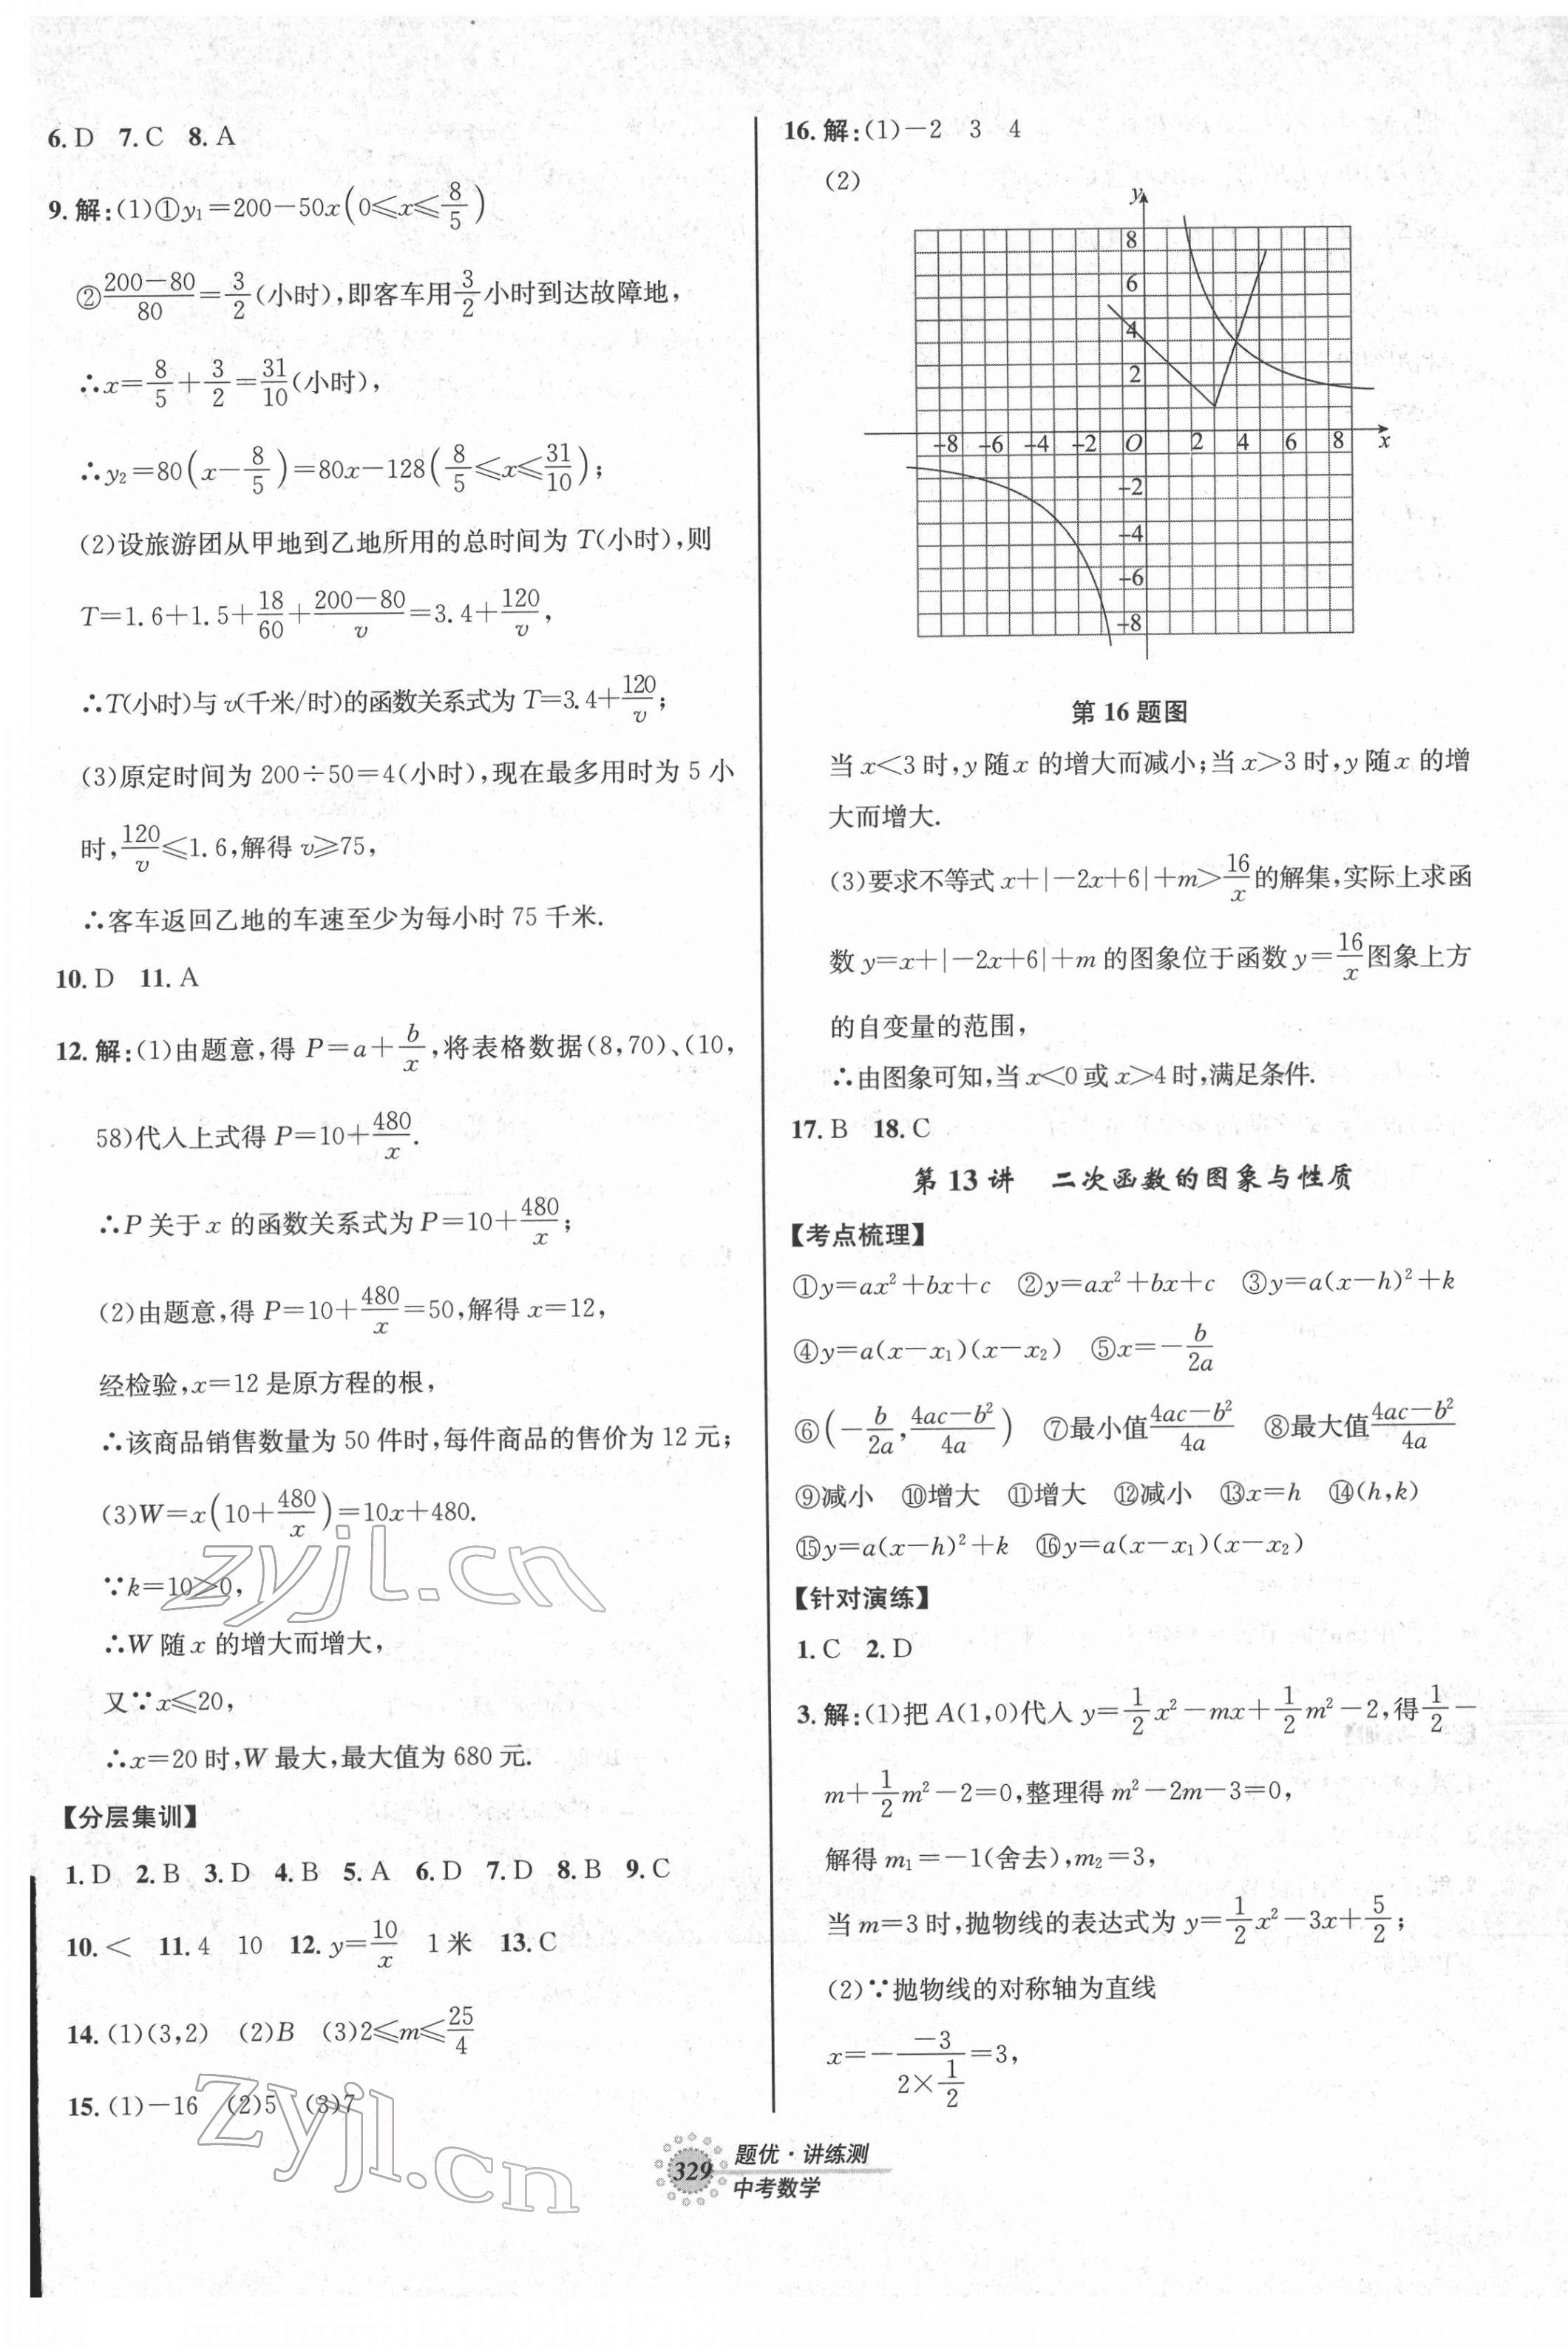 6. D 7. C 8. A
9. 解:(1)①y₁=200-50x(0≤x≤8/5)
②(200-80)/80=3/2(小时),即客车用3/2小时到达故障地,
∴x=8/5+3/2=31/10(小时),
∴y₂=80(x-8/5)=80x-128(8/5≤x≤31/10);
(2)设旅游团从甲地到乙地所用的总时间为 T(小时),则
T=1.6+1.5+18/60+(200-80)/v=3.4+120/v,
∴T(小时)与 v(千米/时)的函数关系式为 T=3.4+120/v;
(3)原定时间为 200÷50=4(小时),现在最多用时为 5 小
时,120/v≤1.6,解得 v≥75,
∴客车返回乙地的车速至少为每小时 75 千米.
10. D 11. A
12. 解:(1)由题意,得 P=a+b/x,将表格数据(8,70)、(10,
58)代入上式得 P=10+480/x.
∴P 关于 x 的函数关系式为 P=10+480/x;
(2)由题意,得 P=10+480/x=50,解得 x=12,
经检验,x=12 是原方程的根,
∴该商品销售数量为 50 件时,每件商品的售价为 12 元;
(3)W=x(10+480/x)=10x+480.
∵k=10>0,
∴W 随 x 的增大而增大,
又∵x≤20,
∴x=20 时,W 最大,最大值为 680 元.
【分层集训】
1. D 2. B 3. D 4. B 5. A 6. D 7. D 8. B 9. C
10. < 11. 4 10 12. y=10/x 1 米 13. C
14. (1)(3,2) (2)B (3)2≤m≤25/4
15. (1)-16 (2)5 (3)7
16. 解:(1)-2 3 4
(2)
y
8
6
4
2
-8 -6 -4 -2 O 2 4 6 8 x
-2
-4
-6
-8
第 16 题图
当 x<3 时,y 随 x 的增大而减小;当 x>3 时,y 随 x 的增
大而增大.
(3)要求不等式 x+|-2x+6|+m>16/x的解集,实际上求函
数 y=x+|-2x+6|+m 的图象位于函数 y=16/x图象上方
的自变量的范围,
∴由图象可知,当 x<0 或 x>4 时,满足条件.
17. B 18. C
第 13 讲 二次函数的图象与性质
【考点梳理】
①y=ax²+bx+c ②y=ax²+bx+c ③y=a(x-h)²+k
④y=a(x-x₁)(x-x₂) ⑤x=-b/2a
⑥(-b/2a,(4ac-b²)/4a) ⑦最小值(4ac-b²)/4a ⑧最大值(4ac-b²)/4a
⑨减小 ⑩增大 ⑪增大 ⑫减小 ⑬x=h ⑭(h,k)
⑮y=a(x-h)²+k ⑯y=a(x-x₁)(x-x₂)
【针对演练】
1. C 2. D
3. 解:(1)把 A(1,0)代入 y=1/2x²-mx+1/2m²-2,得1/2-
m+1/2m²-2=0,整理得 m²-2m-3=0,
解得 m₁=-1(舍去),m₂=3,
当 m=3 时,抛物线的表达式为 y=1/2x²-3x+5/2;
(2)∵抛物线的对称轴为直线
x=-(-3)/(2×1/2)=3,
zyjl.cn
zyjl.cn
329
题优·讲练测
中考数学